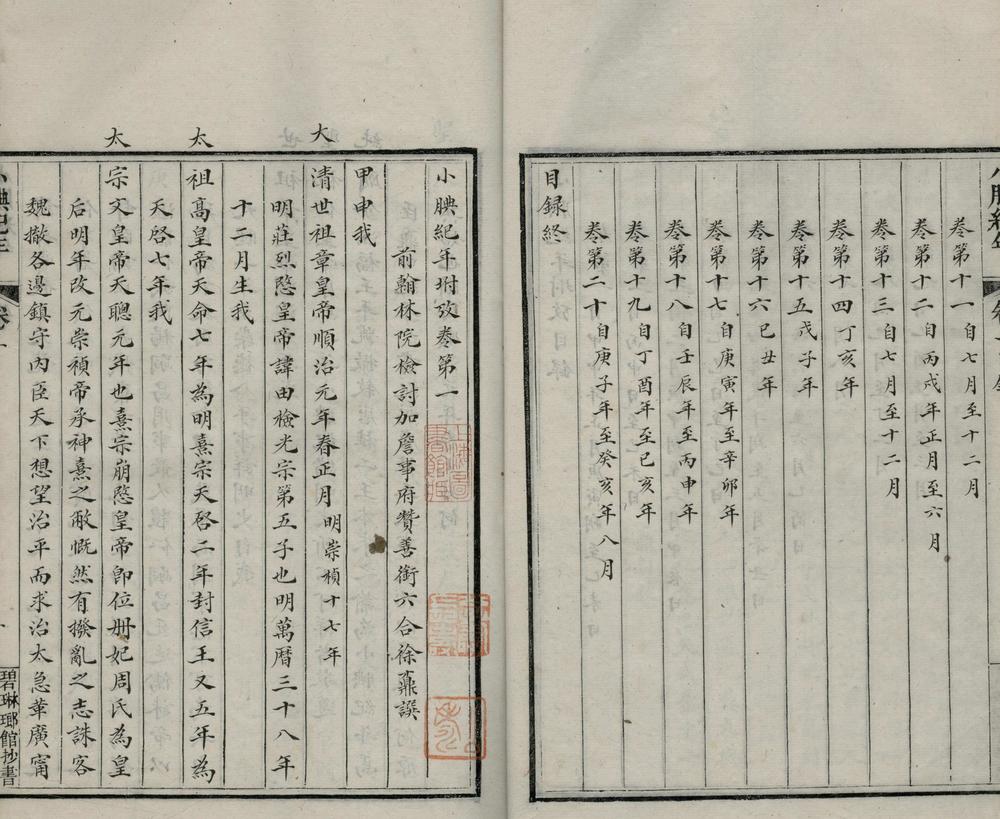 卷第十一自七月至十二月
卷第十二自丙戌年正月至六月
卷第十三自七月至十二月
卷第十四丁亥年
卷第十五戊子年
卷第十六己丑年
卷第十七自庚寅年至辛卯年
卷第十八自壬辰年至丙申年
卷第十九自丁酉年至己亥年
卷第二十自庚子年至癸亥年八月
目録終
小腆紀年坿攷卷第一
前翰林院檢討加詹事府贊善銜六合徐鼒譔
甲申我
大清世祖章皇帝順治元年春正月明崇禎十七年
明莊烈愍皇帝諱由檢光宗第五子也明萬曆三十八年
十二月生我
太祖高皇帝天命七年為明熹宗天啓二年封信王又五年為
天啓七年我
太宗文皇帝天聰元年也熹宗崩愍皇帝卽位册妃周氏為皇
后明年改元崇禎帝承神熹之敝慨然有撥亂之志誅客
魏撤各邊鎮守內臣天下想望治平而求治太急華廣甯
碧琳瑯館抄書